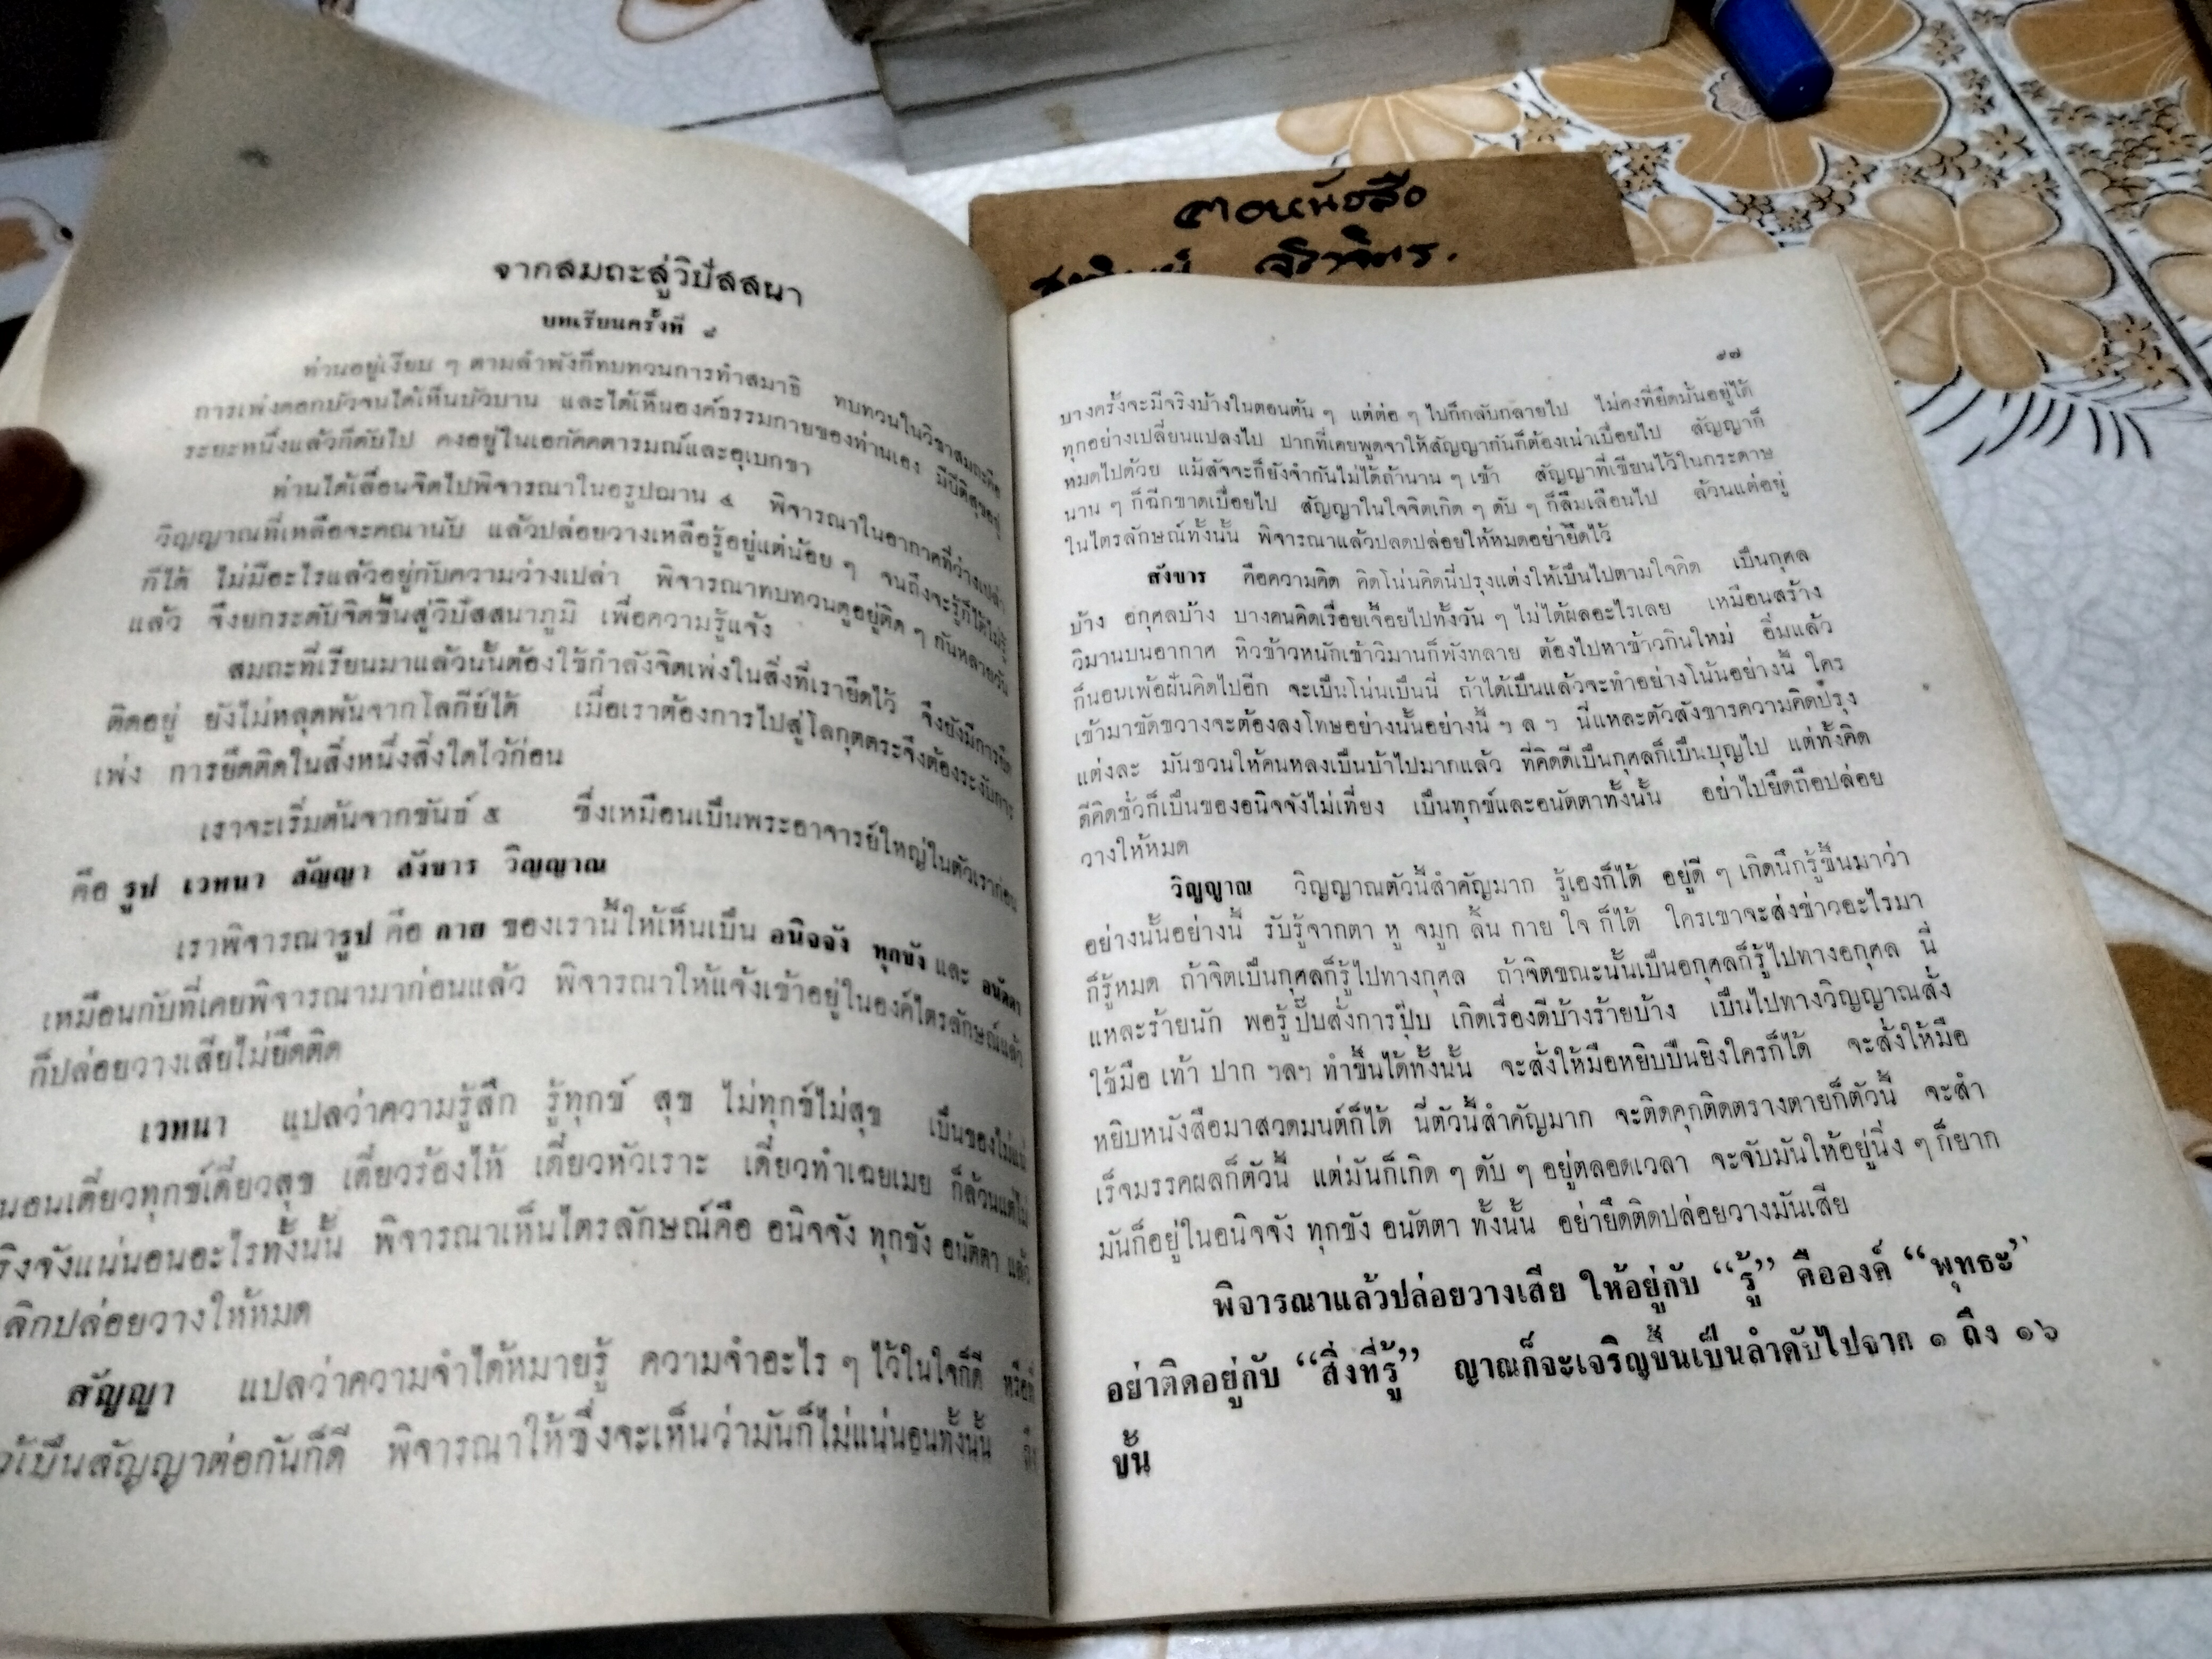 ตอหนังสือ
จากสมถะสู่วิปัสสนา
บทเรียนครั้งที่ ๘
ท่านอยู่เงียบ ๆ ตามลำพังก็ทบทวนการทำสมาธิ ทบทวนในวิชาสมถะคือ
การเพ่งดอกบัวจนได้เห็นบัวบาน และได้เห็นองค์ธรรมกายของท่านเอง มีปีติสุขอยู่
ระยะหนึ่งแล้วก็ดับไป คงอยู่ในเอกัคคตารมณ์และอุเบกขา
ท่านได้เลื่อนจิตไปพิจารณาในอรูปฌาน ๔ พิจารณาในอากาศที่ว่างเปล่า
วิญญาณที่เหลือจะคณานับ แล้วปล่อยวางเหลือรู้อยู่แต่น้อย ๆ จนถึงจะรู้ก็ได้ไม่รู้
ก็ได้ ไม่มีอะไรแล้วอยู่กับความว่างเปล่า พิจารณาทบทวนดูอยู่ติด ๆ กันหลายวัน
แล้ว จึงยกระดับจิตขึ้นสู่วิปัสสนาภูมิ เพื่อความรู้แจ้ง
สมถะที่เรียนมาแล้วนั้นต้องใช้กำลังจิตเพ่งในสิ่งที่เรายึดไว้ จึงยังมีการยึด
ติดอยู่ ยังไม่หลุดพ้นจากโลกีย์ได้ เมื่อเราต้องการไปสู่โลกุตตระจึงต้องระงับการ
เพ่ง การยึดติดในสิ่งหนึ่งสิ่งใดไว้ก่อน
เราจะเริ่มต้นจากขันธ์ ๕ ซึ่งเหมือนเป็นพระอาจารย์ใหญ่ในตัวเราก่อน
คือ รูป เวทนา สัญญา สังขาร วิญญาณ
เราพิจารณารูป คือ กาย ของเรานี้ให้เห็นเป็น อนิจจัง ทุกขัง และ อนัตตา
เหมือนกับที่เคยพิจารณามาก่อนแล้ว พิจารณาให้แจ้งเข้าอยู่ในองค์ไตรลักษณ์แล้ว
ก็ปล่อยวางเสียไม่ยึดติด
เวทนา แปลว่าความรู้สึก รู้ทุกข์ สุข ไม่ทุกข์ไม่สุข เป็นของไม่แน่
นอนเดี๋ยวทุกข์เดี๋ยวสุข เดี๋ยวร้องไห้ เดี๋ยวหัวเราะ เดี๋ยวทำเฉยเมย ก็ล้วนแต่ไม่
จริงจังแน่นอนอะไรทั้งนั้น พิจารณาเห็นไตรลักษณ์คือ อนิจจัง ทุกขัง อนัตตา แล้ว
ลิกปล่อยวางให้หมด
สัญญา แปลว่าความจำได้หมายรู้ ความจำอะไร ๆ ไว้ในใจก็ดี
เป็นสัญญาต่อกันก็ดี พิจารณาให้ซึ้งจะเห็นว่ามันก็ไม่แน่นอนทั้งนั้น
๙๗
บางครั้งจะมีจริงบ้างในตอนต้น ๆ แต่ต่อ ๆ ไปก็กลับกลายไป ไม่คงที่ยึดมั่นอยู่ได้
ทุกอย่างเปลี่ยนแปลงไป ปากที่เคยพูดจาให้สัญญากันก็ต้องเน่าเปื่อยไป สัญญาก็
หมดไปด้วย แม้สัจจะก็ยังจำกันไม่ได้ถ้านาน ๆ เข้า สัญญาที่เขียนไว้ในกระดาษ
นาน ๆ ก็ฉีกขาดเปื่อยไป สัญญาในใจจิตเกิด ๆ ดับ ๆ ก็ลืมเลือนไป ล้วนแต่อยู่
ในไตรลักษณ์ทั้งนั้น พิจารณาแล้วปลดปล่อยให้หมดอย่ายึดไว้
สังขาร คือความคิด คิดโน่นคิดนี่ปรุงแต่งให้เป็นไปตามใจคิด เป็นกุศล
บ้าง อกุศลบ้าง บางคนคิดเรื่อยเจื้อยไปทั้งวัน ๆ ไม่ได้ผลอะไรเลย เหมือนสร้าง
วิมานบนอากาศ หิวข้าวหนักเข้าวิมานก็พังทลาย ต้องไปหาข้าวกินใหม่ อิ่มแล้ว
ก็นอนเพ้อฝันคิดไปอีก จะเป็นโน่นเป็นนี่ ถ้าได้เป็นแล้วจะทำอย่างโน้นอย่างนี้ ใคร
เข้ามาขัดขวางจะต้องลงโทษอย่างนั้นอย่างนี้ ฯ ล ฯ นี่แหละตัวสังขารความคิดปรุง
แต่งละ มันชวนให้คนหลงเป็นบ้าไปมากแล้ว ที่คิดดีเป็นกุศลก็เป็นบุญไป แต่ทั้งคิด
ดีคิดชั่วก็เป็นของอนิจจังไม่เที่ยง เป็นทุกข์และอนัตตาทั้งนั้น อย่าไปยึดถือปล่อย
วางให้หมด
วิญญาณ วิญญาณตัวนี้สำคัญมาก รู้เองก็ได้ อยู่ดี ๆ เกิดนึกรู้ขึ้นมาว่า
อย่างนั้นอย่างนี้ รับรู้จากตา หู จมูก ลิ้น กาย ใจ ก็ได้ ใครเขาจะส่งข่าวอะไรมา
ก็รู้หมด ถ้าจิตเป็นกุศลก็รู้ไปทางกุศล ถ้าจิตขณะนั้นเป็นอกุศลก็รู้ไปทางอกุศล นี่
แหละร้ายนัก พอรู้ปั๊บสั่งการปุ๊บ เกิดเรื่องดีบ้างร้ายบ้าง เป็นไปทางวิญญาณสั่ง
ใช้มือ เท้า ปาก ฯลฯ ทำขึ้นได้ทั้งนั้น จะสั่งให้มือหยิบปืนยิงใครก็ได้ จะสั่งให้มือ
หยิบหนังสือมาสวดมนต์ก็ได้ นี่ตัวนี้สำคัญมาก จะติดคุกติดตรางตายก็ตัวนี้ จะสำ
เร็จมรรคผลก็ตัวนี้ แต่มันก็เกิด ๆ ดับ ๆ อยู่ตลอดเวลา จะจับมันให้อยู่นิ่ง ๆ ก็ยาก
มันก็อยู่ในอนิจจัง ทุกขัง อนัตตา ทั้งนั้น อย่ายึดติดปล่อยวางมันเสีย
พิจารณาแล้วปล่อยวางเสีย ให้อยู่กับ “รู้” คือองค์ “พุทธะ”
อย่าติดอยู่กับ “สิ่งที่รู้” ญาณก็จะเจริญขึ้นเป็นลำดับไปจาก ๑ ถึง ๑๖
ขั้น